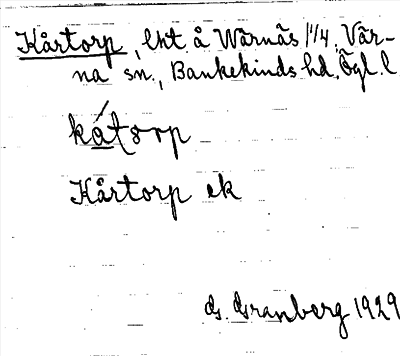 Kårtorp, lht å Wärnäs 1/4, Vår-
na sn., Bankekinds hd, Ögl. l
kátorp
Kårtorp ek
G. Granberg 1929